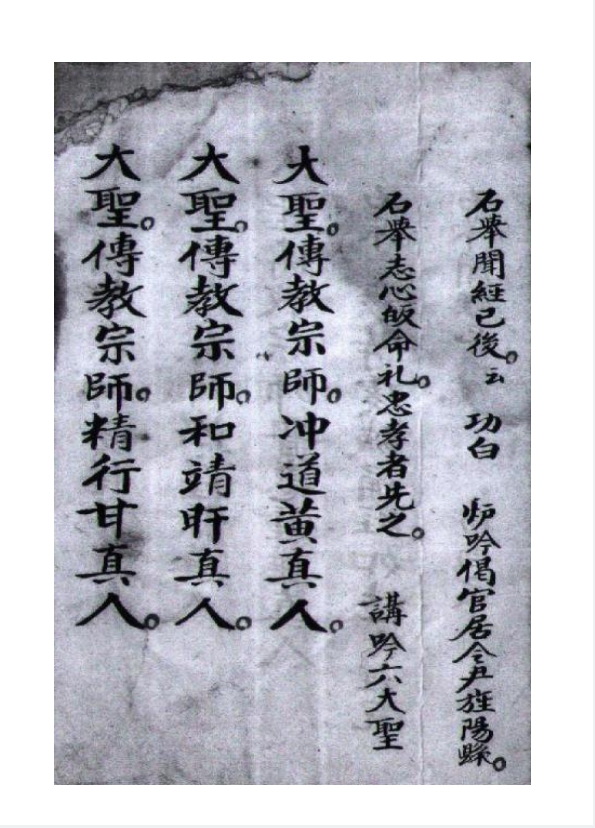 石舉聞經已後。云 功白 炉吟偈官居令尹旌陽縣。
石舉志心皈命礼忠孝者先之。 講吟六大聖
大聖。傳教宗師。冲道黄真人。
大聖。傳教宗師。和靖旰真人。
大聖。傳教宗師。精行甘真人。